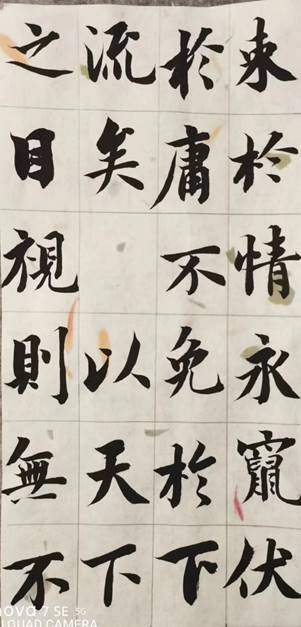 束於情永竄伏
於庸不免於下
流矣 以天下
之目視則無不
nova 7 SE 5G
QUAD CAMERA